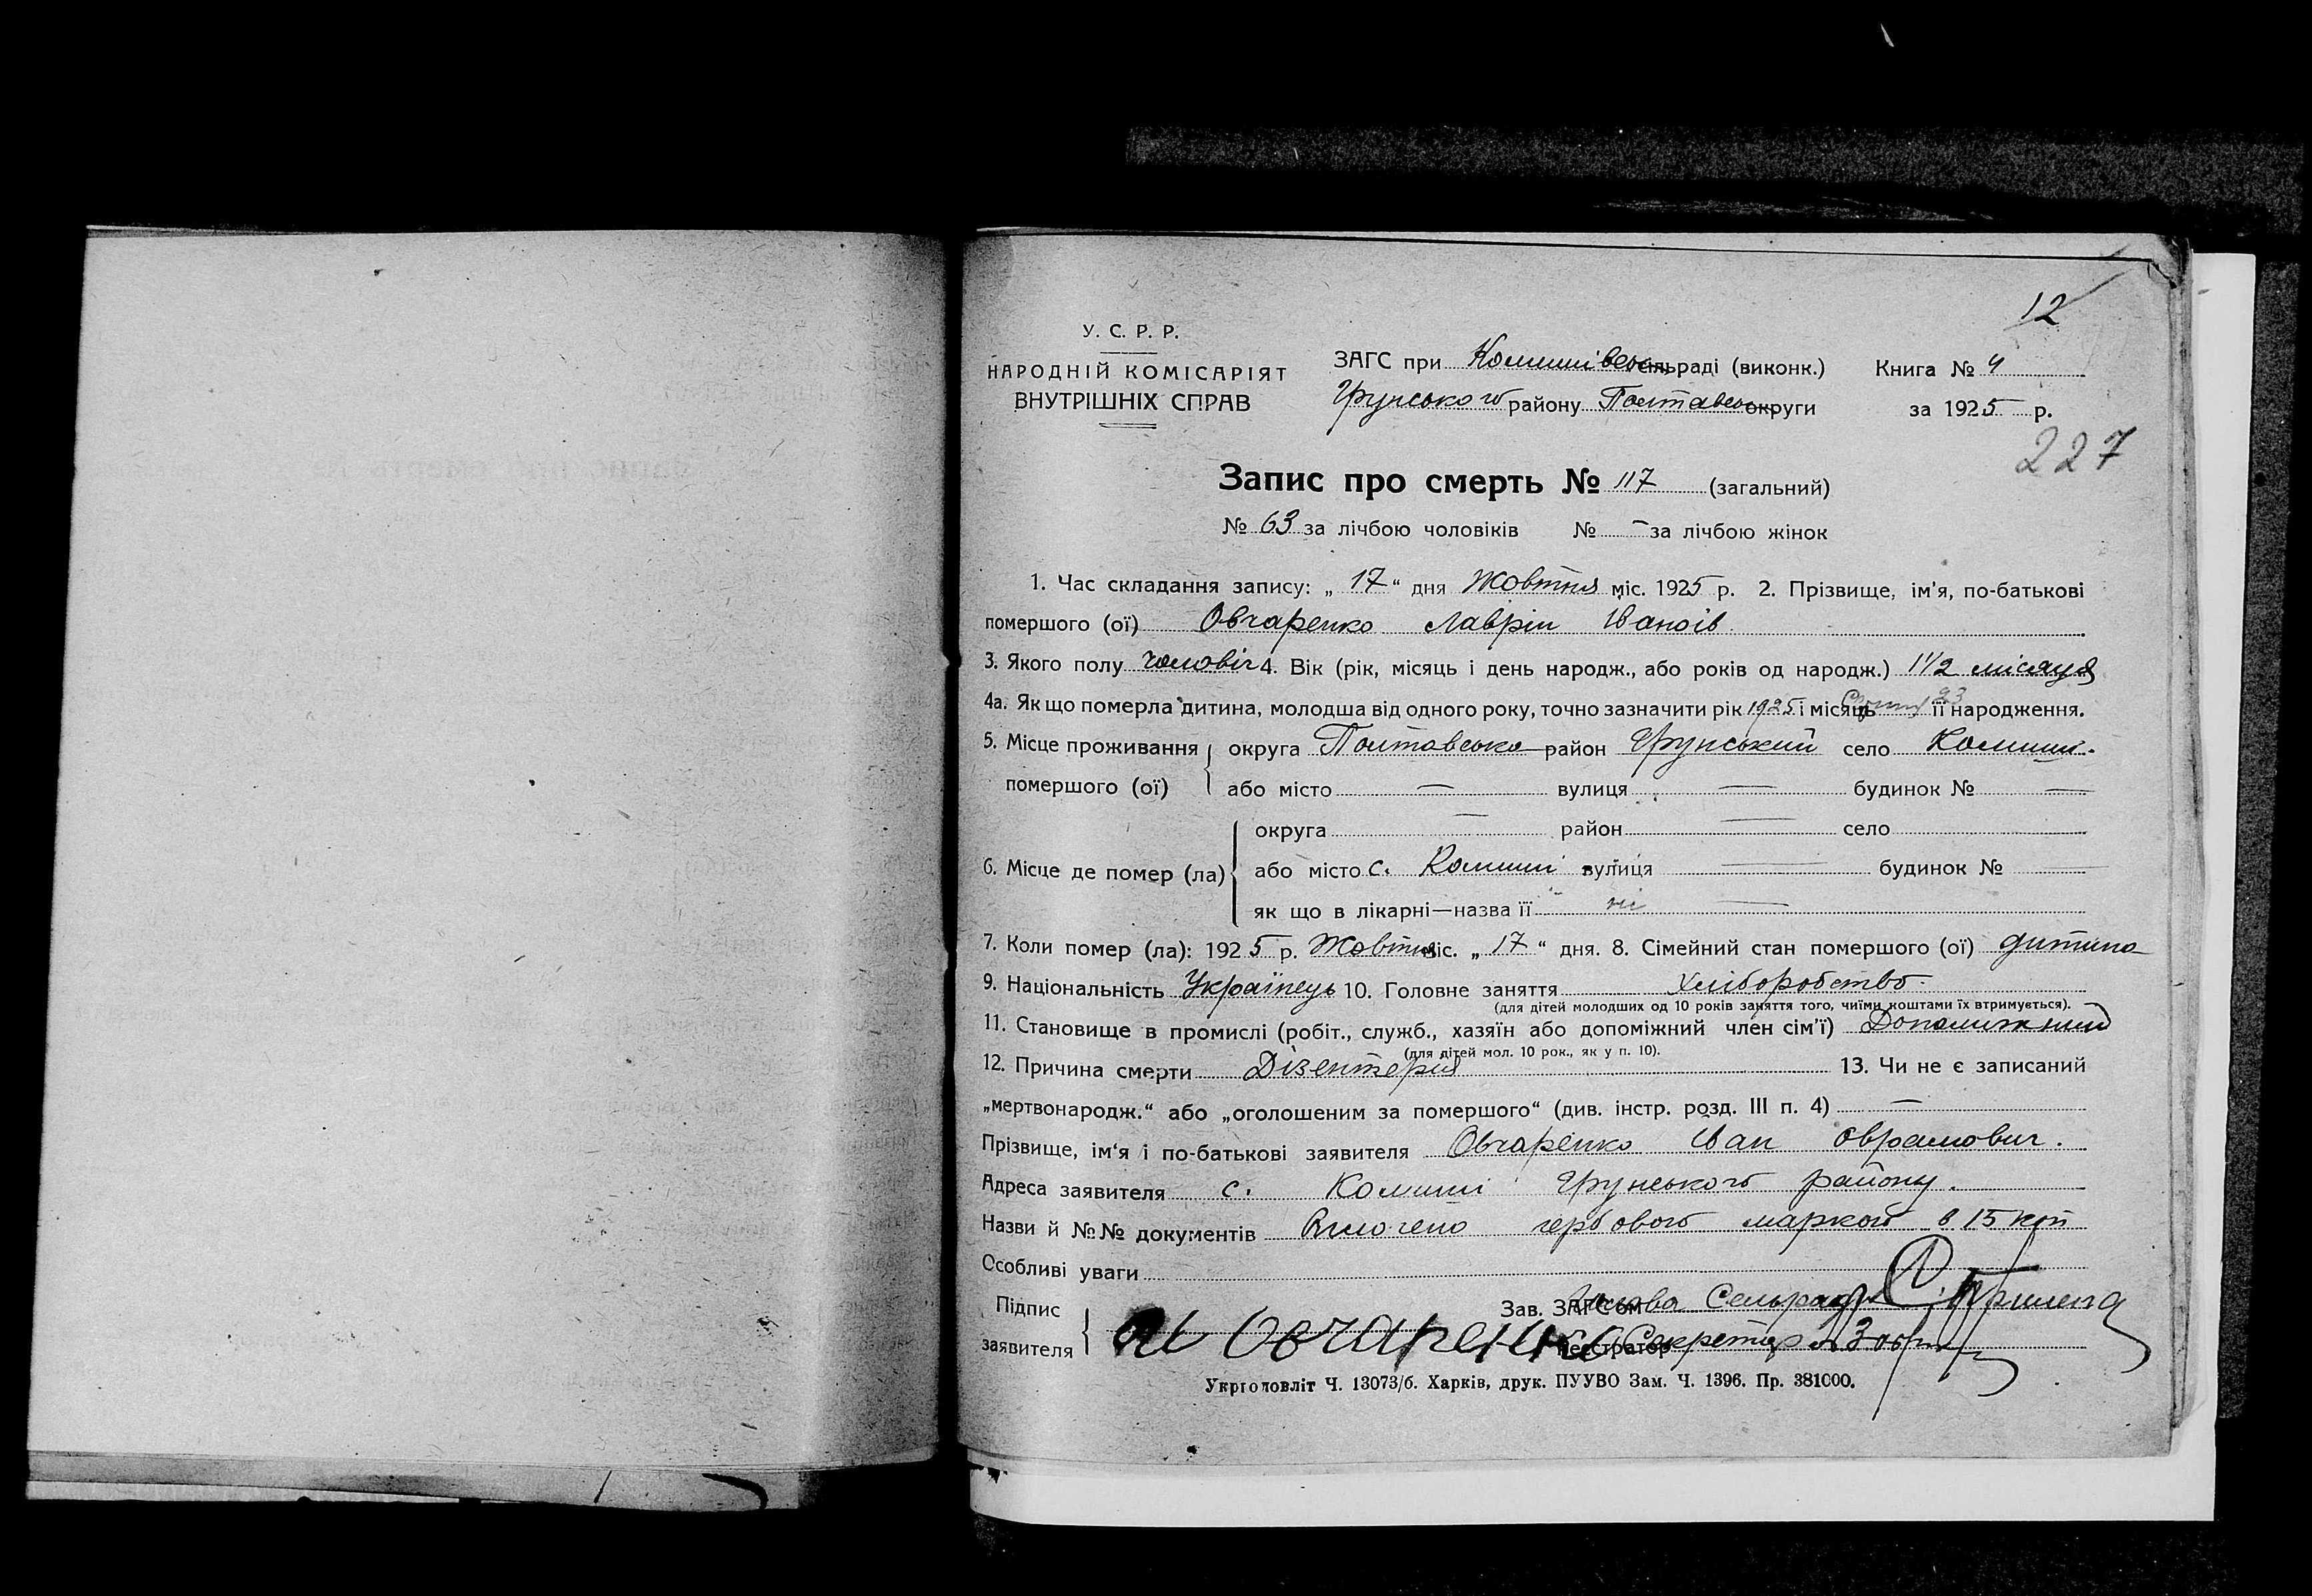 12
У. С. Р. Р.
НАРОДНІЙ КОМІСАРІЯТ
ВНУТРІШНІХ СПРАВ
ЗАГС при Комишівсь сільраді (виконк.) Книга № 4
Грунського району Полтавськ округи за 1925 р.
227
Запис про смерть № 117 (загальний)
№ 63 за лічбою чоловіків № — за лічбою жінок
1. Час складання запису: „ 17 “ дня Жовтня міс. 1925 р. 2. Прізвище, ім'я, по-батькові
помершого (ої) Овчаренко Лаврін Іванов
3. Якого полу чоловіч 4. Вік (рік, місяць і день народж., або років од народж.) 1 1/2 місяця
4а. Як що померла дитина, молодша від одного року, точно зазначити рік 1925 і місяць 23 її народження.
5. Місце проживання округа Полтавська район Грунський село Комиші.
помершого (ої) або місто — вулиця — будинок № —
округа — район — село
6. Місце де помер (ла) або місто с. Комиші вулиця — будинок № —
як що в лікарні—назва її ні —
7. Коли помер (ла): 1925 р. Жовтня міс. „ 17 “ дня. 8. Сімейний стан помершого (ої) дитина
9. Національність Українець 10. Головне заняття Хліборобство.
(для дітей молодших од 10 років заняття того, чиїми коштами їх втримується).
11. Становище в промислі (робіт., служб., хазяїн або допоміжний член сім'ї) Допомижний
(для дітей мол. 10 рок., як у п. 10).
12. Причина смерти Дізентерия 13. Чи не є записаний
„мертвонародж.“ або „оголошеним за помершого“ (див. інстр. розд. III п. 4) —
Прізвище, ім'я і по-батькові заявителя Овчаренко Іван Оврамович.
Адреса заявителя с. Комиші Грунського району.
Назви й №№ документів гербового маркою в 15 коп
Особливі уваги
Підпис Зав. ЗАГС'ом Голова Сельради
заявителя Овчаренко Реєстратор Секретар
Укрголовліт Ч. 13073/б. Харків, друк. ПУУВО Зам. Ч. 1396. Пр. 381000.